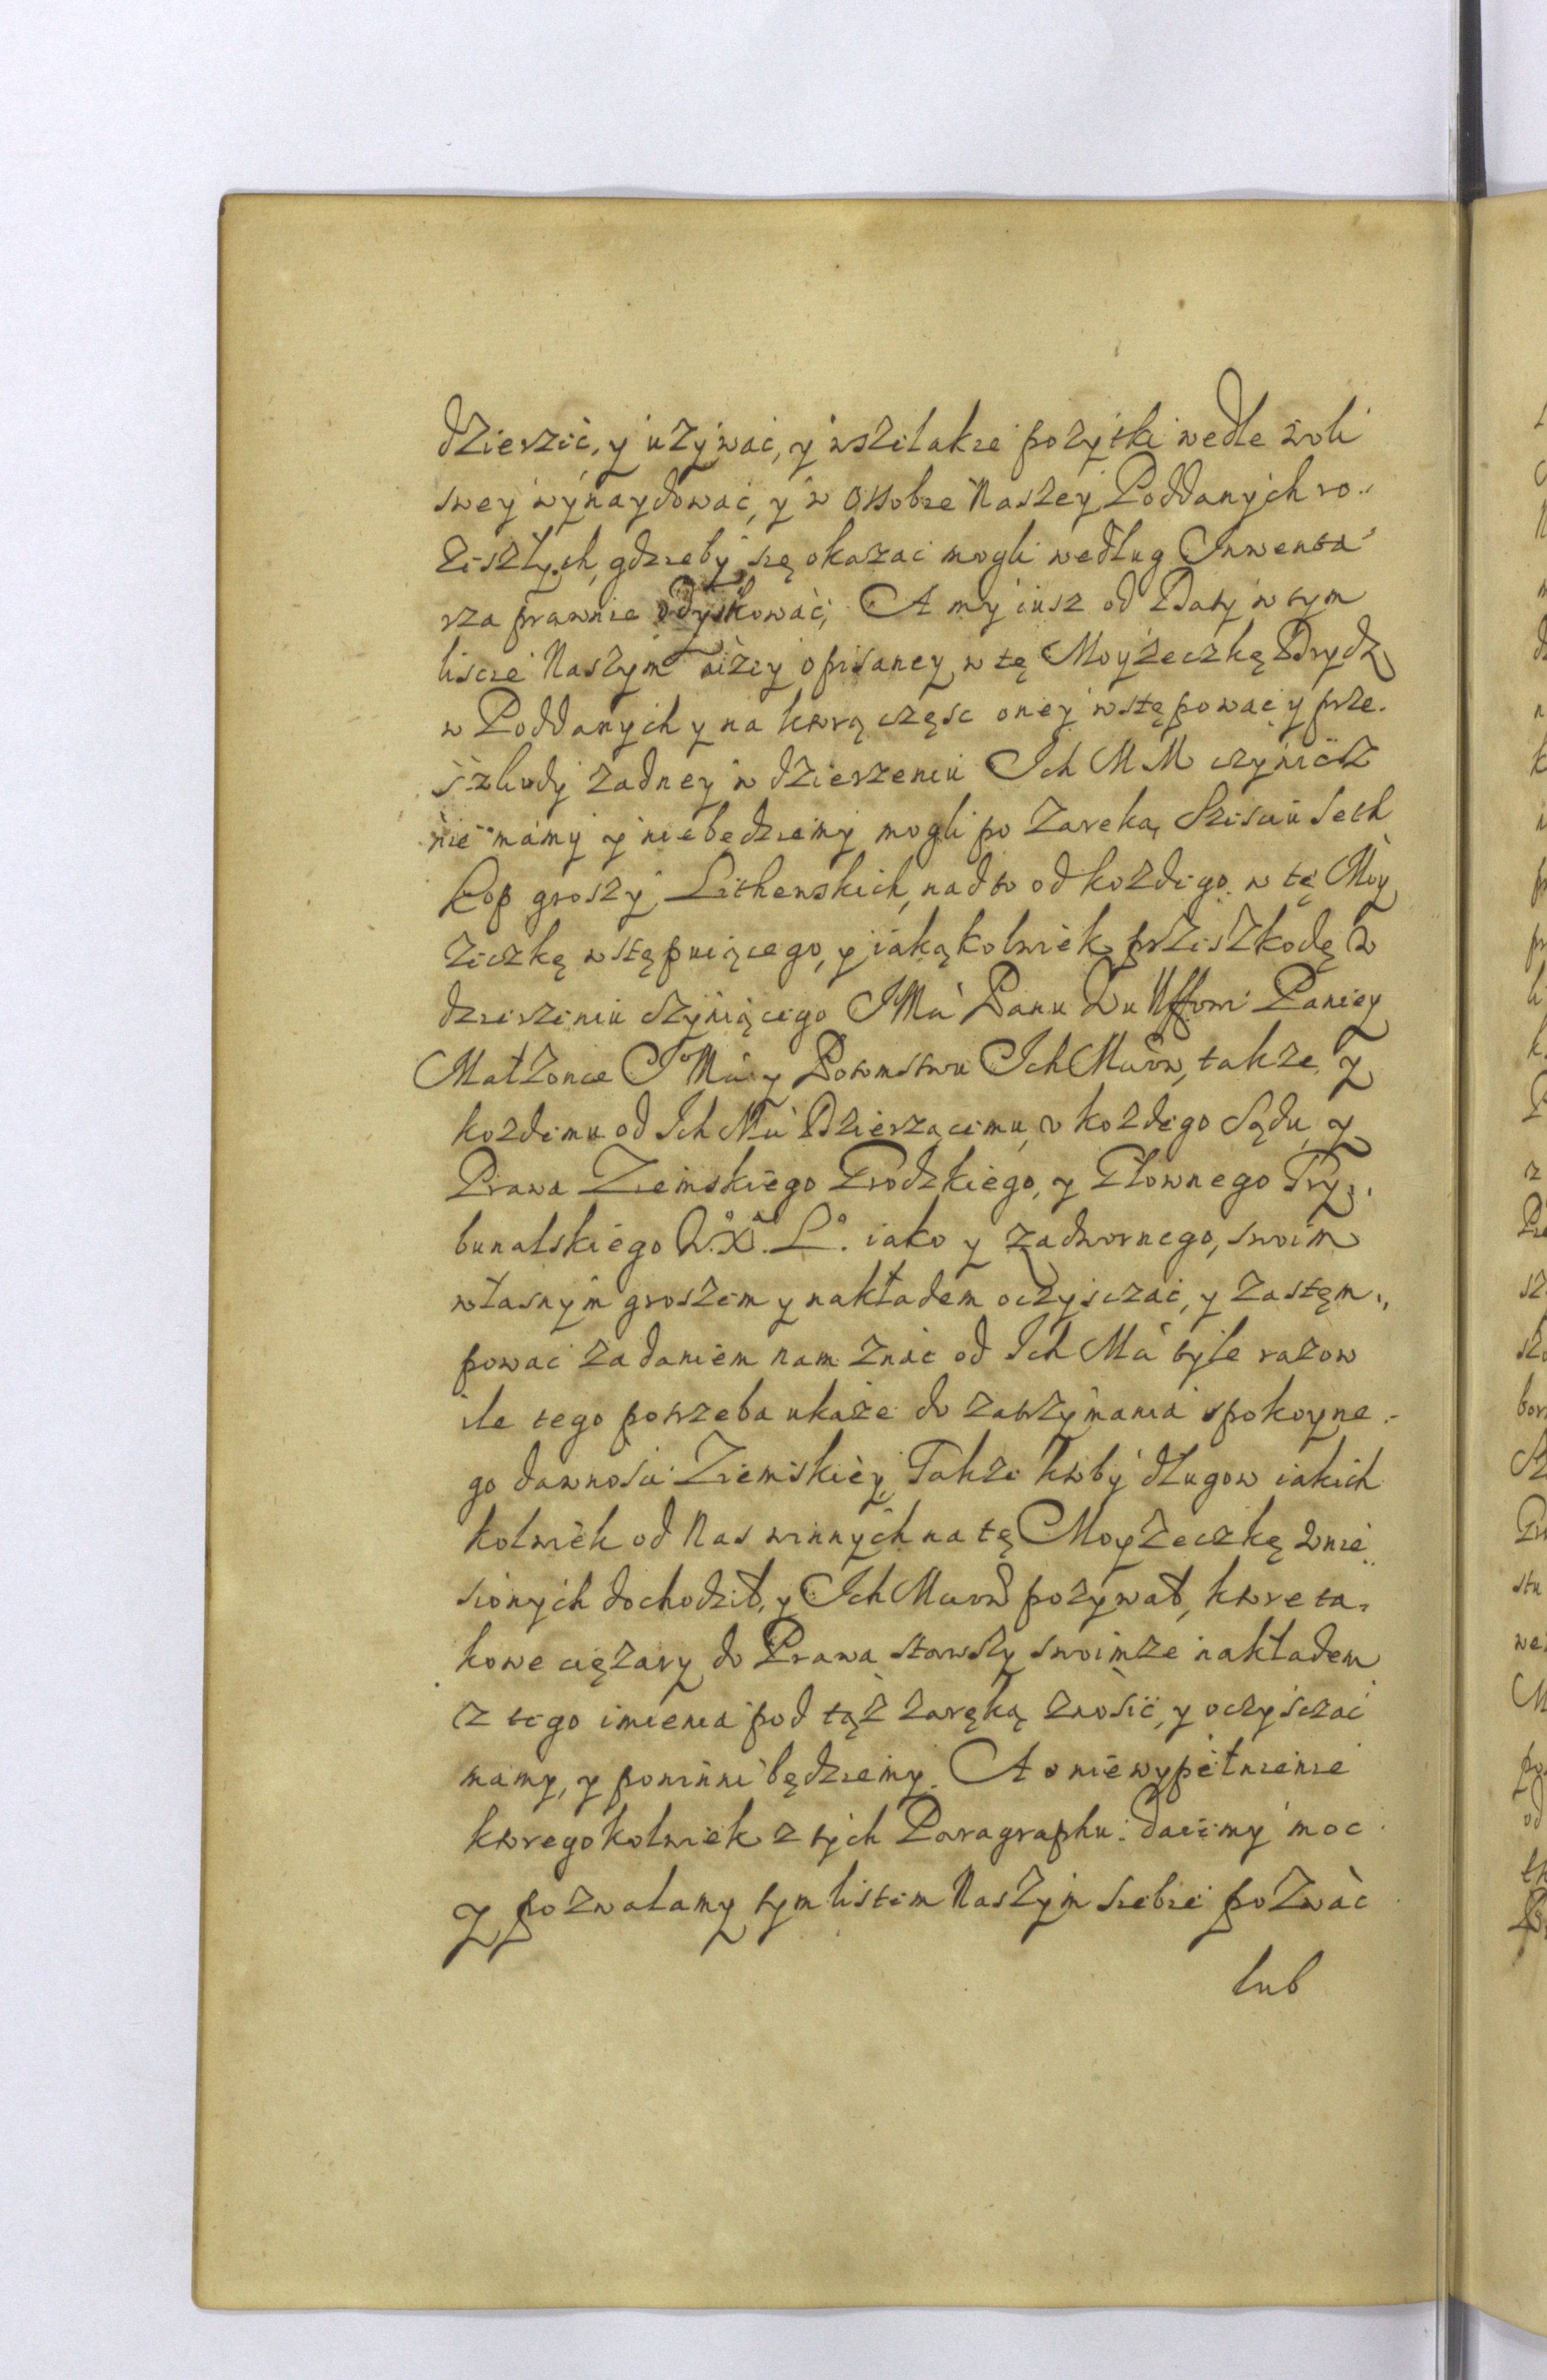 dzierzić, y uzywac, y wszelakie pozytki wedle woli
swey wynaydować, y w Ossobie Naszey Poddanych ro„
ziszłych, gdzieby się okazac mogli według Inwenta
rza prawnie odyskować; A my iusz od Daty w tym
liscie Naszym niżey opisaney w tę Moyżeczkę Brydz
w Poddanych y na ktorą częsc oney wstępowac y prze.
szkody zadney w dzierzeniu Ich M M czynicz
nie mamy y niebędziemy mogli po Zaręką Szisciu Seth
kop groszy Lithewskich, nadto od kozdego w tę Moy
zeczkę wstępuiącego, y iakąkolwiek przeszkodę w
dzierzeniu czyniącego JMci Panu Paniey
Małzonce J Mci y Potomstwu Ich Mciow, takze y
kozdemu od Ich Mci Dzierzącemu, v kozdego Sądu, y
Prawa Ziemskiego Grodzkiego, y Głownego Try„
bunalskiego W. X. L. iako y zadwornego, swoim
własnym groszem y nakładem oczysczać, y Zastęm„
powac za daniem nam znac od Ich Mci tyle razow
ile tego potrzeba ukaże do zatrzymania spokoyne-
go dawnosci Ziemskiey, Takze ktoby długow iakich
kolwiek od Nas winnych na tę Moyzeczkę wnie„
sionych dochodził, y Ich Mciow pozywał, ktore ta-
kowe ciężary do Prawa stawszy swoimze nakładem
z tego imienia pod tąż zaręką znosić, y oczysczać
mamy, y powinni będziemy. A o niewypełnienie
ktoregokolwiek z tych Paragraphu: daiemy moc
y pozwalamy tym listem Naszym siebie pozwać
lub